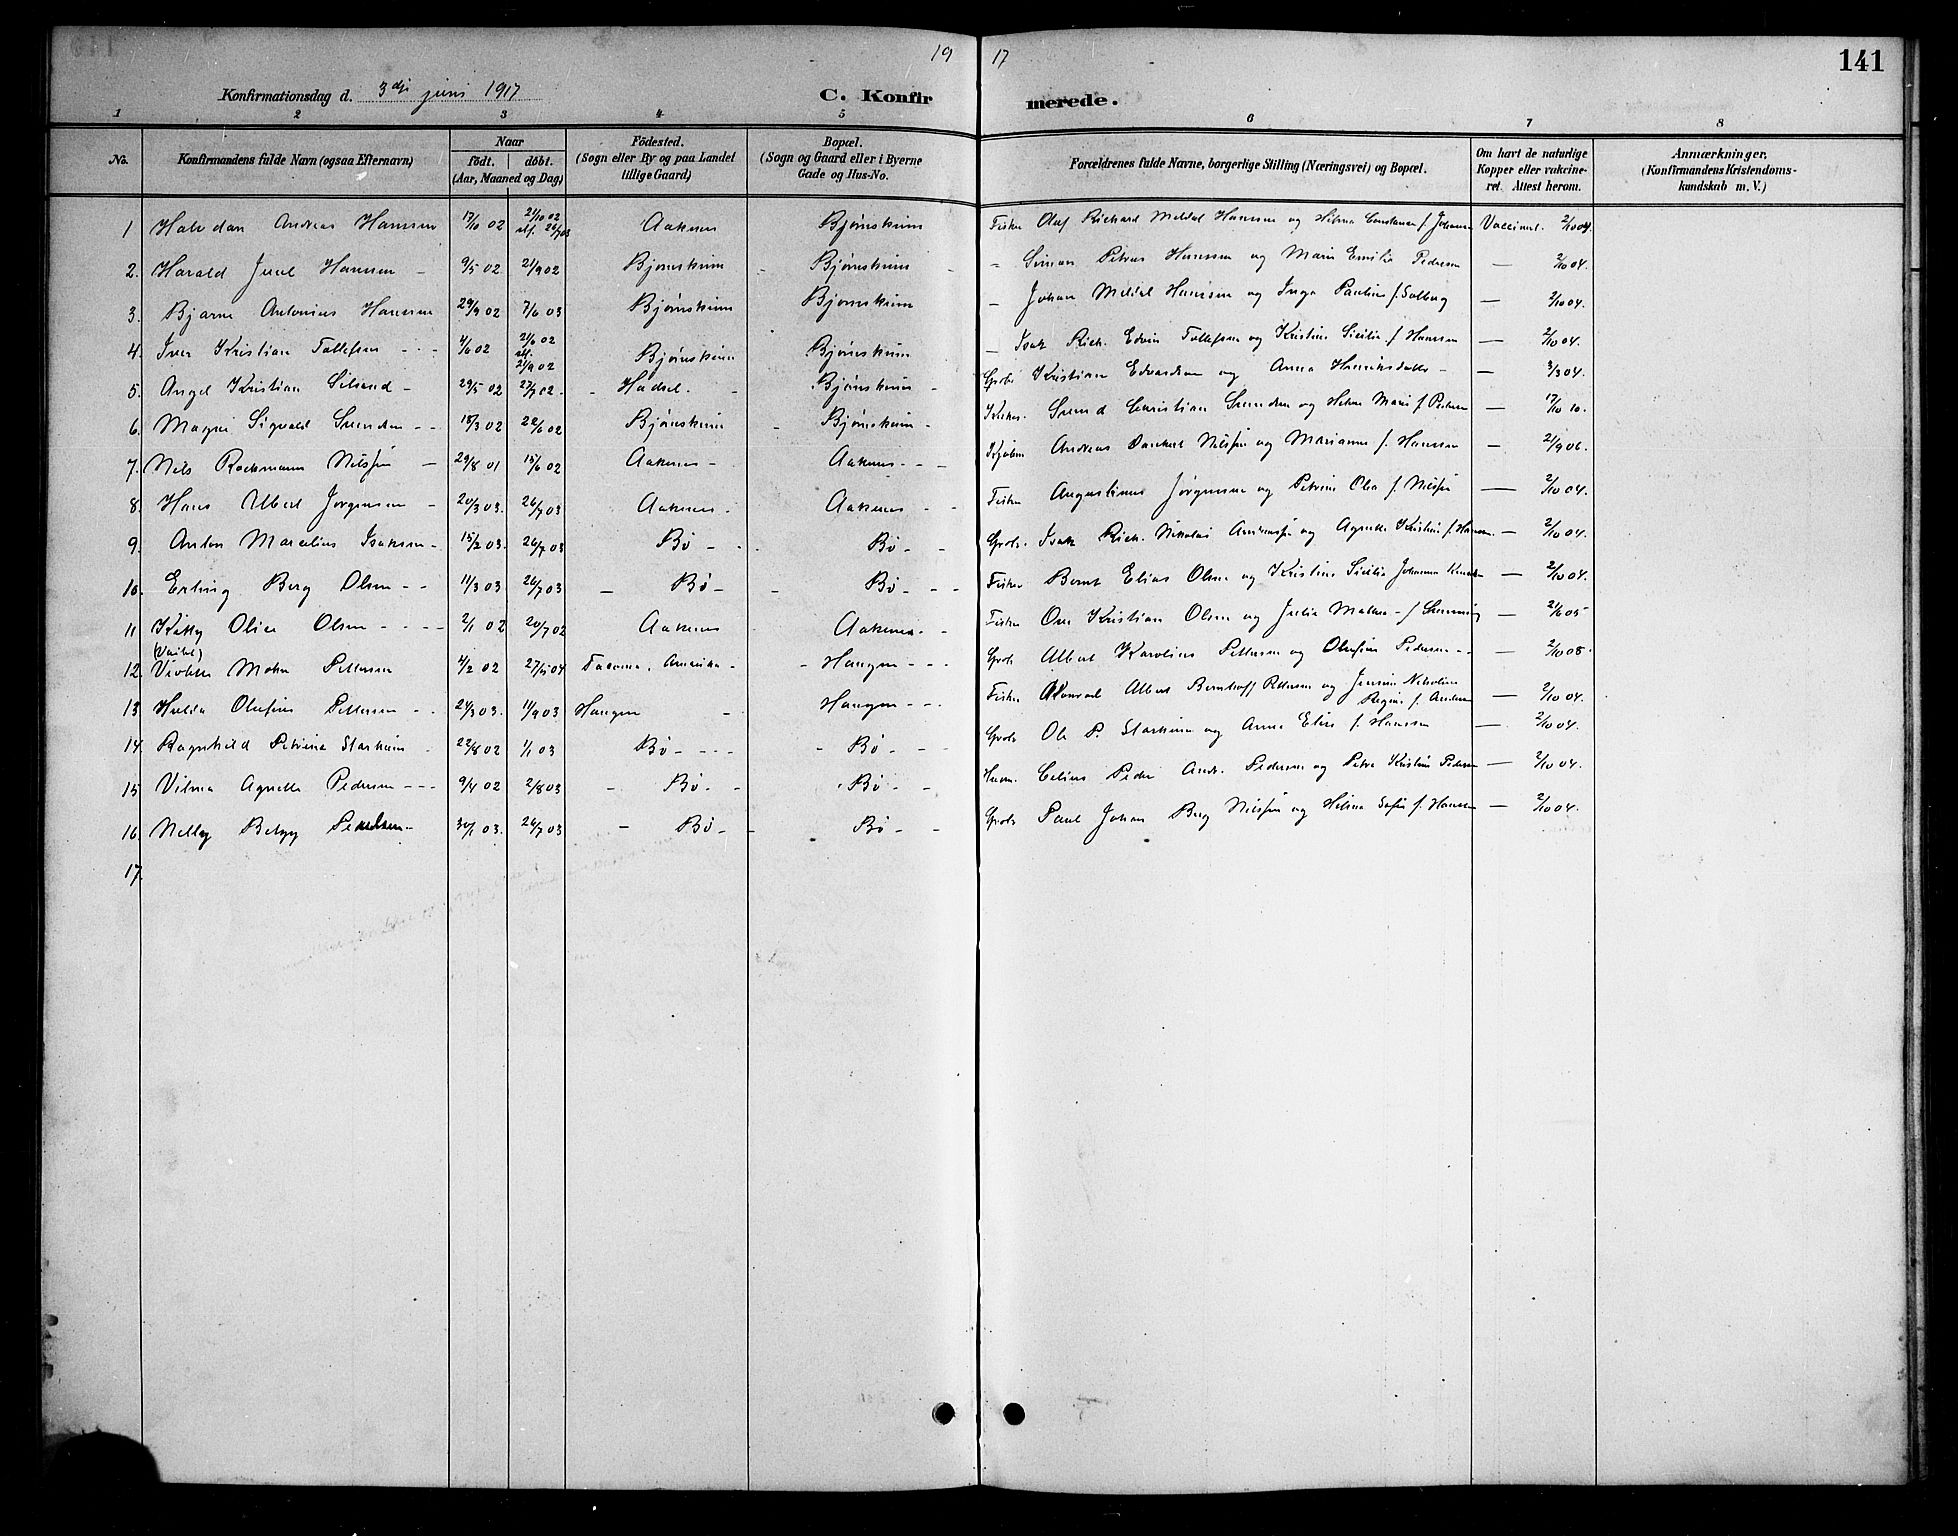 19 17 141
Konfirmationsdag d. 3dje juni 1917 C. Konfirmerede.
1 2 3 4 5 6 7 8
No. Konfirmandens fulde Navn (ogsaa Efternavn) Naar födt. döbt. (Aar, Maaned og Dag) Födested. (Sogn eller By og paa Landet tillige Gaard) Bopæl. (Sogn og Gaard eller i Byerne Gade og Hus-No. Forældrenes fulde Navne, borgerlige Stilling (Næringsvei) og Bopæl. Om havt de naturlige Kopper eller vakcineret. Attest herom. Anmærkninger. (Konfirmandens Kristendomskundskab m. V.)
1 Halvdan Andreas Hanssen 17/10 02 Aaknes Bjørnskinn Fisker Olaf Richard Meldal Hanssen og Helma Constanse f. Johansen 2/10 04.
2. Harald Juul Hanssen - 9/5 02 21/9 02 Bjørnskinn Bjørnskinn - Simon Petrus Hanssen og Marie Emilie Pedersen — 2/10 04.
3. Bjarne Antonius Hanssen 29/9 02 7/6 03 Bjørnskinn Bjørnskinn - Johan Meldal Hanssen og Inga Pauline f. Solberg — 2/10 04.
4. Iver Kristian Tollefsen - - 4/6 02 Bjørnskinn Bjørnskinn - Isak Rich. Edvin Tollefsen og Kristine Sicilie f Hanssen — 2/10 04.
5. Angel Kristian - 29/5 02 27/7 02. - Hadsel. - Bjørnskinn - Grbr Kristian Edvardsen og Anna Henriksdatter - — 3/3 04.
6. Magne Sigvald Svendsen - - 18/3 02 22/6 02 Bjørnskinn - Bjørnskinn - Svend Christian Svendsen og Marie f. Pedersen — 17/10 10.
7. Nils Nilssen — 29/8 01 15/6 02 Aaknes - Aaknes - - - Andreas Nilssen og Marianne f. Hanssen — 21/9 06.
8. Hans Albert Jørgensen - 20/3 03. 26/7 03 Aaknes - Aaknes - - Fisker Augustinus Jørgensen og Petrine f. Nilssen — 2/10 04.
9. Anton Marcelius Isaksen - 15/2 03. 26/7 03 Bø - - Bø - - Grbr. Isak Rich. Nikolai Andreassen og Agnethe Kristine f. Hansen. — 2/10 04.
10. Erling Berg Olsen - - 11/3 03 26/7 03 — Bø - - Bø - - - Fisker Bernt Elias Olsen og Kristine Sicilie Johanna — 2/10 04.
11 Kitty Olise Olsen - - - - 2/1 02 20/7 02 Aaknes Aaknes. - Fisker Ove Kristian Olsen og Julie — 21/6 05
12. Mohn Pettersen 4/2 02 Tacoma, Amerika - - Haugen - - - Grbr Albert Karolius Pettersen og Olufine Pedersen - - — 2/10 08.
13. Hulda Olufine Pettersen - - 24/3 03. 11/9 03 Haugen - Haugen - - - Fisker Albert Bernhoff Pettersen og Jensine Nikoline Regine f. Andersen — 2/10 04.
14. Ragnhild Petrine Starheim - 22/8 02 1/1 03 Bø - - - - - Bø - - - Grbr Ole P. Starheim og Anne Elise f. Hanssen — 2/10 04.
15 Vilma Agnethe Pedersen - - - 9/4 02 2/8 03 - Bø - - - Bø - - Peder Andr. Pedersen og Petra Kristine Pedersen — 2/10 04.
16 Nelly Betzy 30/1 03. 26/7 03 — Bø - - Bø - - Grbr Paul Johan Berg Nilssen og Helma Sofie f. Hansen — 2/10 04.
17.